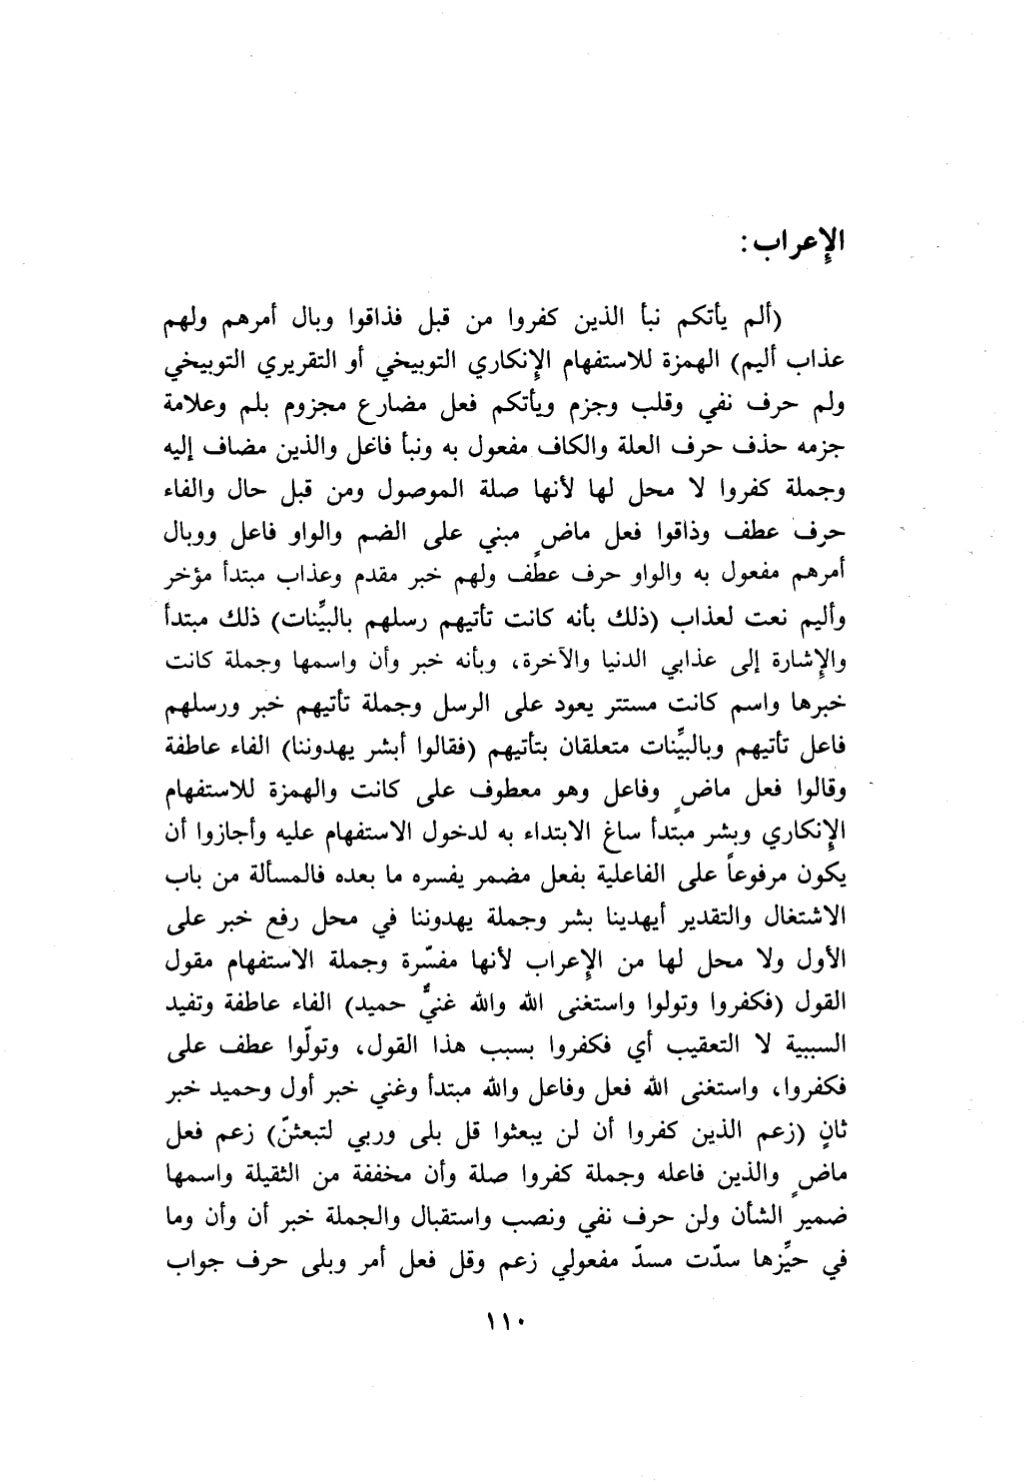 الإعراب:
(ألم يأتكم نبأ الذين كفروا من قبل فذاقوا وبال أمرهم ولهم
عذاب أليم) الهمزة للاستفهام الإنكاري التوبيخي أو التقريري التوبيخي
ولم حرف نفي وقلب وجزم ويأتكم فعل مضارع مجزوم بلم وعلامة
جزمه حذف حرف العلة والكاف مفعول به ونبأ فاعل والذين مضاف إليه
وجملة كفروا لا محل لها لأنها صلة الموصول ومن قبل حال والفاء
حرف عطف وذاقوا فعل ماضٍ مبني على الضم والواو فاعل ووبال
أمرهم مفعول به والواو حرف عطف ولهم خبر مقدم وعذاب مبتدأ مؤخر
وأليم نعت لعذاب (ذلك بأنه كانت تأتيهم رسلهم بالبيِّنات) ذلك مبتدأ
والإشارة إلى عذابي الدنيا والآخرة، وبأنه خبر وأن واسمها وجملة كانت
خبرها واسم كانت مستتر يعود على الرسل وجملة تأتيهم خبر ورسلهم
فاعل تأتيهم وبالبيِّنات متعلقان بتأتيهم (فقالوا أبشر يهدوننا) الفاء عاطفة
وقالوا فعل ماضٍ وفاعل وهو معطوف على كانت والهمزة للاستفهام
الإنكاري وبشر مبتدأ ساغ الابتداء به لدخول الاستفهام عليه وأجازوا أن
يكون مرفوعاً على الفاعلية بفعل مضمر يفسره ما بعده فالمسألة من باب
الاشتغال والتقدير أيهدينا بشر وجملة يهدوننا في محل رفع خبر على
الأول ولا محل لها من الإعراب لأنها مفسّرة وجملة الاستفهام مقول
القول (فكفروا وتولوا واستغنى الله والله غنيٌّ حميد) الفاء عاطفة وتفيد
السببية لا التعقيب أي فكفروا بسبب هذا القول، وتولّوا عطف على
فكفروا، واستغنى الله فعل وفاعل والله مبتدأ وغني خبر أول وحميد خبر
ثانٍ (زعم الذين كفروا أن لن يبعثوا قل بلى وربي لتبعثنّ) زعم فعل
ماضٍ والذين فاعله وجملة كفروا صلة وأن مخففة من الثقيلة واسمها
ضمير الشأن ولن حرف نفي ونصب واستقبال والجملة خبر أن وأن وما
في حيِّزها سدّت مسدّ مفعولي زعم وقل فعل أمر وبلى حرف جواب
١١٠